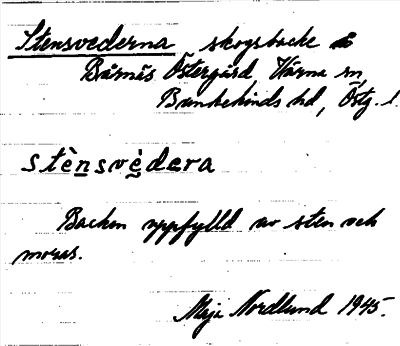 Stensvederna skogsbacke å
Bårnäs Östergård Härna sn,
Bankekinds hd, Östg. l.
stènsvèdera
Backen uppfylld av sten och
moras.
Maja Nordlund 1945.